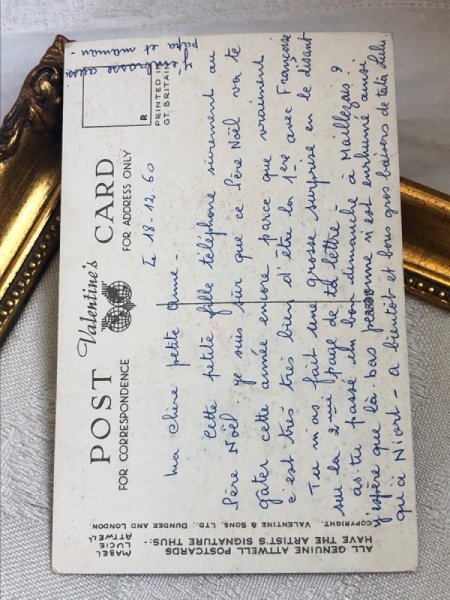 POST CARD
Valentine's
FOR CORRESPONDENCE
FOR ADDRESS ONLY
R
PRINTED IN
GT. BRITAIN
Le 18.12.60
Ma chère petite Anne -
Cette petite fille téléphone surement au
Père Noël y suis sûr que ce Père Noël va te
gâter cette année encore parce que vraiment
c'est très très bien d'être la 1ère avec Françoise
Tu m'as fait une grosse surprise en le disant
sur la 2ème page de ta lettre
as tu passé un bon dimanche à Maillezais ?
J'espère que là-bas personne n'est enrhumé ainsi
qu'à Niort - A bientôt et bons gros baisers de tata Lulu
embrasse aussi
papa et maman.
ALL GENUINE ATTWELL POSTCARDS
HAVE THE ARTIST'S SIGNATURE THUS:-
MABEL
LUCIE
ATTWELL
COPYRIGHT, VALENTINE & SONS, LTD., DUNDEE AND LONDON